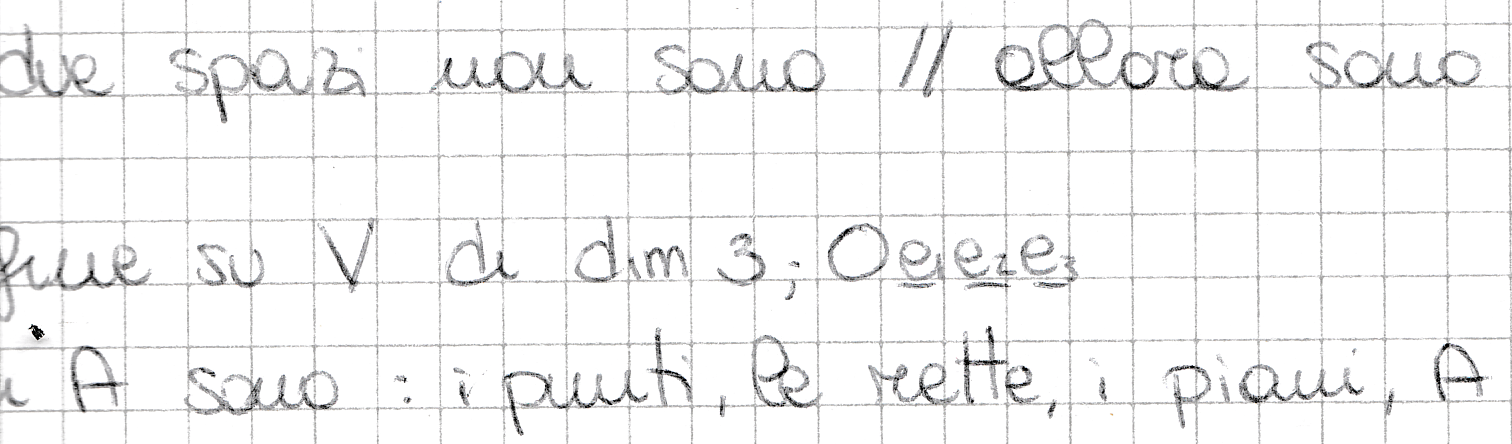 due spazi non sono // allora sono
fine su V di dim 3; Oe1e2e3
i A sono : i punti, le rette, i piani, A